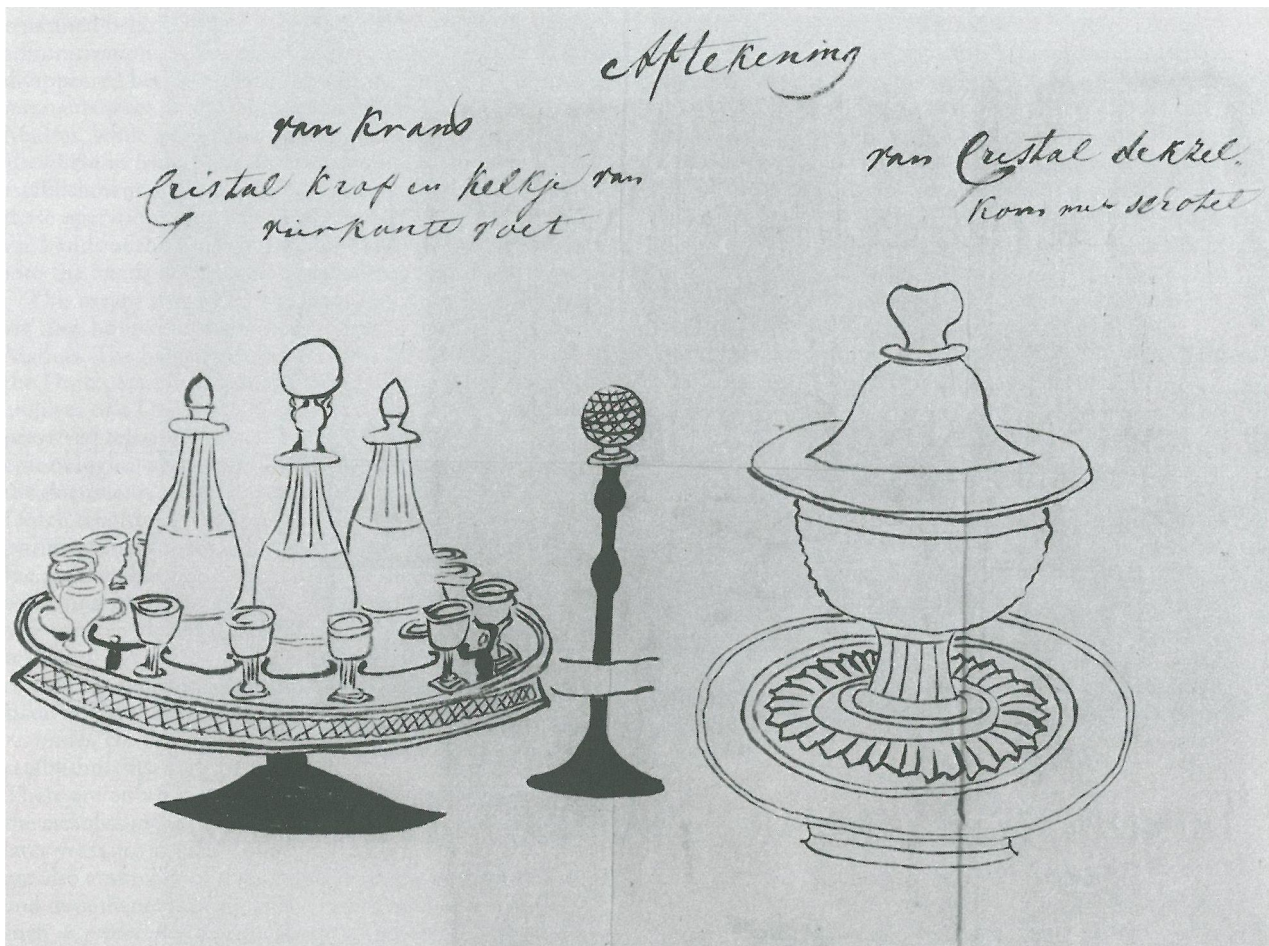 Aftekening
van Krans
Cristal Kraf en Kelkje van
vierkante voet
van Cristal dekzel.
Kom met schotel